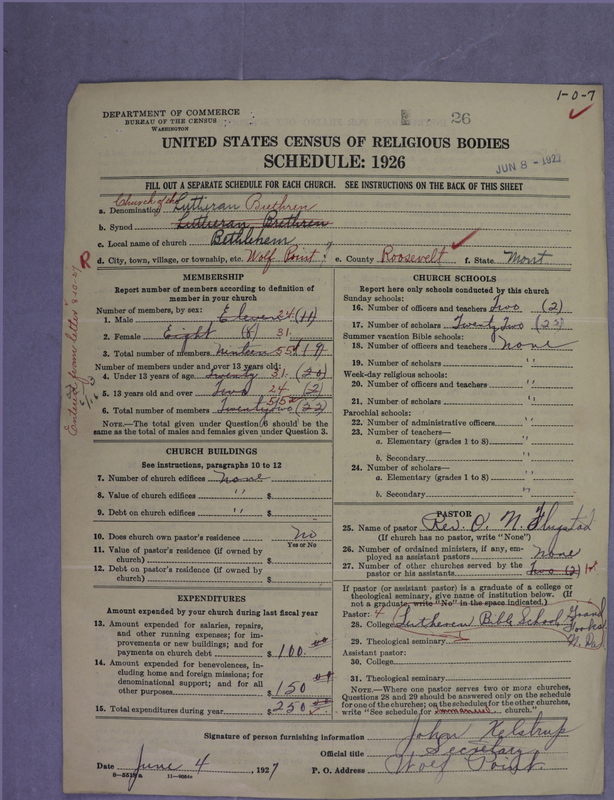 1-0-7
DEPARTMENT OF COMMERCE
BUREAU OF THE CENSUS
WASHINGTON
26
UNITED STATES CENSUS OF RELIGIOUS BODIES
SCHEDULE: 1926
JUN 8 - 1927
FILL OUT A SEPARATE SCHEDULE FOR EACH CHURCH. SEE INSTRUCTIONS ON THE BACK OF THIS SHEET
a. Denomination Church of the Lutheran Brethren
b. Synod Lutheran Brethren
c. Local name of church Bethlehem
d. City, town, village, or township, etc. Wolf Point ? e. County Roosevelt f. State Mont
R
Entered from letter 8-10-27
MEMBERSHIP
Report number of members according to definition of
member in your church
Number of members, by sex:
1. Male Eleven 24 (11)
2. Female Eight (8) 31
3. Total number of members Nineteen 55 (19)
Number of members under and over 13 years old:
4. Under 13 years of age Twenty 31 (20)
5. 13 years old and over Two 24 (2)
6. Total number of members Twentytwo 55 (22)
NOTE.—The total given under Question 6 should be the
same as the total of males and females given under Question 3.
CHURCH BUILDINGS
See instructions, paragraphs 10 to 12
7. Number of church edifices none
8. Value of church edifices " $
9. Debt on church edifices " $
10. Does church own pastor's residence No
Yes or No
11. Value of pastor's residence (if owned by
church) $
12. Debt on pastor's residence (if owned by
church) $
EXPENDITURES
Amount expended by your church during last fiscal year
13. Amount expended for salaries, repairs,
and other running expenses; for im-
provements or new buildings; and for
payments on church debt $ 100.00
14. Amount expended for benevolences, in-
cluding home and foreign missions; for
denominational support; and for all
other purposes $ 150 00
15. Total expenditures during year $ 250 00
CHURCH SCHOOLS
Report here only schools conducted by this church
Sunday schools:
16. Number of officers and teachers Two (2)
17. Number of scholars Twenty Two (22)
Summer vacation Bible schools:
18. Number of officers and teachers none
19. Number of scholars "
Week-day religious schools:
20. Number of officers and teachers "
21. Number of scholars "
Parochial schools:
22. Number of administrative officers "
23. Number of teachers—
a. Elementary (grades 1 to 8) "
b. Secondary "
24. Number of scholars—
a. Elementary (grades 1 to 8) "
b. Secondary "
PASTOR
25. Name of pastor Rev. O. N.
(If church has no pastor, write "None")
26. Number of ordained ministers, if any, em-
ployed as assistant pastors none
27. Number of other churches served by the
pastor or his assistants Two (2)
If pastor (or assistant pastor) is a graduate of a college or
theological seminary, give name of institution below. (If
not a graduate, write "No" in the space indicated.)
Pastor: 4
28. College Lutheran Bible School Grand Forks N. Da
29. Theological seminary
Assistant pastor:
30. College
31. Theological seminary
NOTE.—Where one pastor serves two or more churches,
Questions 28 and 29 should be answered only on the schedule
for one of the churches; on the schedules for the other churches,
write "See schedule for Immanuel church."
Signature of person furnishing information John
Official title Secretary
Date June 4, 1927 P. O. Address Wolf Point.